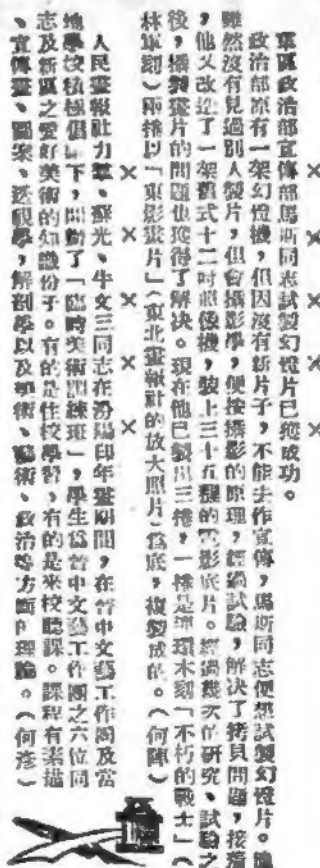 軍區政治部宣傳部馬斯同志試製幻燈片已獲成功。
政治部原有一架幻燈機,但因沒有新片子,不能去作宣傳,馬斯同志便想試製幻燈片。他
雖然沒有見過別人製片,但會攝影學,便按攝影的原理,經過試驗,解決了拷貝問題,接着
,他又改造了一架舊式十二吋照像機,裝上三十五糎的電影底片。經過幾次的研究、試驗之
後,攝製燈片的問題也獲得了解决。現在他已製出三捲,一捲是連環木刻「不朽的戰士」(
林軍刻)兩捲以「東影畫片」(東北畫報社的放大照片)爲底,複製成的。(何陣)
× × × × ×
人民畫報社力羣、蘇光、牛文三同志在汾陽印年畫期間,在晉中文藝工作團及當
地學校積極倡 下,開辦了「臨時美術訓練班」,學生爲晉中文藝工作團之六位同
志及新區之愛好美術的知識份子。有的是住校學習,有的是來校聽課。課程有素描
、宣傳畫、圖案、透視學,解剖學以及美術、藝術、政治等方面的理論。(何彥)